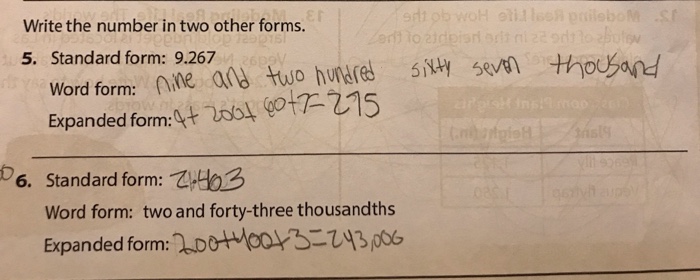 Write the number in two other forms.
5. Standard form: 9.267
Word form: nine and two hundred sixty seven thousand
Expanded form: 9+ 200+ 60+7=275
6. Standard form: 2.403
Word form: two and forty-three thousandths
Expanded form: 200+400+3=243,006